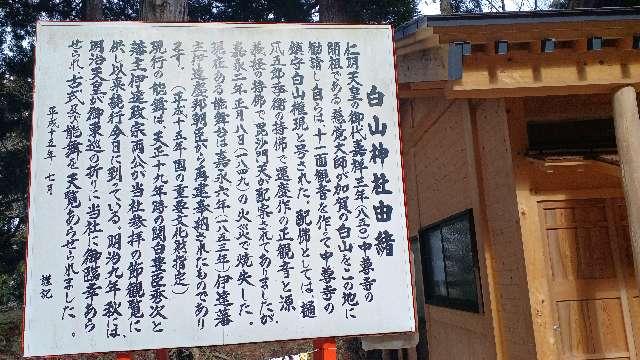 白山神社由緒
仁明天皇の御代嘉祥三年(八五〇)中尊寺の
開祖である慈覚大師が加賀の白山をこの地に
勧請し自らは十一面観音を作って中尊寺の
鎮守白山権現と号された。配佛としては、樋
爪五郎季衡の持佛で運慶作の正観音と源
義経の持佛で毘沙門天が配案されてありましたが
嘉永二年正月八日(一八四九)の火災で焼失した。
現在ある能舞台は嘉永六年(一八五三年)伊達藩
主伊達慶邦朝臣から再建奉納されたものであり
ます。(平成十五年 国の重要文化財指定)
現行の能舞は天正十九年時の関白豊臣秀次と
藩主伊達政宗両公が当社参拝の節観覧に
供し以来続行今日に到っている。明治九年秋は、
明治天皇が御東巡の折りに当社に御臨幸あら
せられ古式ば能舞を天覧あらせられました。
平成十五年 七月
謹記